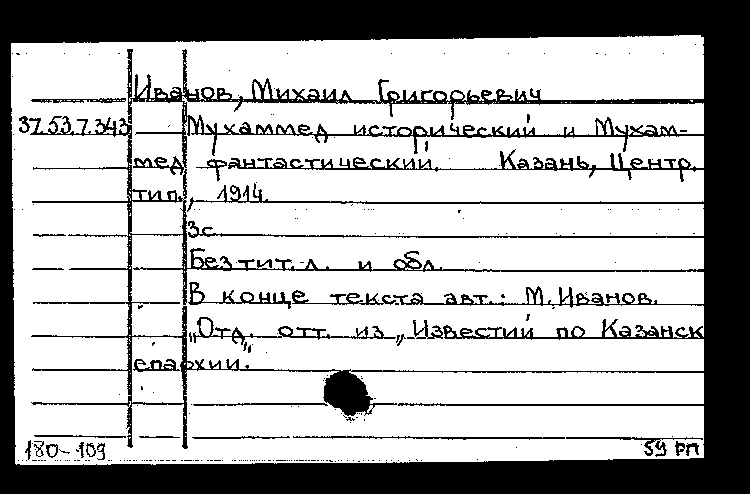 Иванов, Михаил Григорьевич
37.53.7.343 Мухаммед исторический и Мухам-
мед фантастический. Казань, Центр.
тип., 1914.
3с.
Без тит. л. и обл.
В конце текста авт.: М. Иванов.
"Отд. отт. из „Известий по Казанск
епархии."
180-109 59 РП